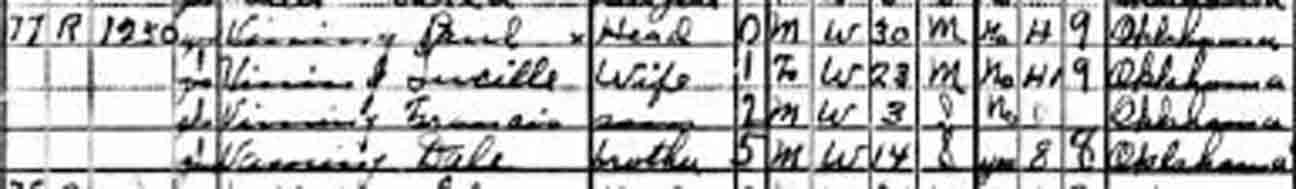 77 R 12.50 Vining Paul x Head 0 M W 30 M No H 9 Oklahoma
Vining Lucille Wife 1 Fe W 23 M No H1 9 Oklahoma
Vining Francis son 2 M W 3 S No 0 Oklahoma
Vining Dale brother 5 M W 14 S yes 8 8 Oklahoma